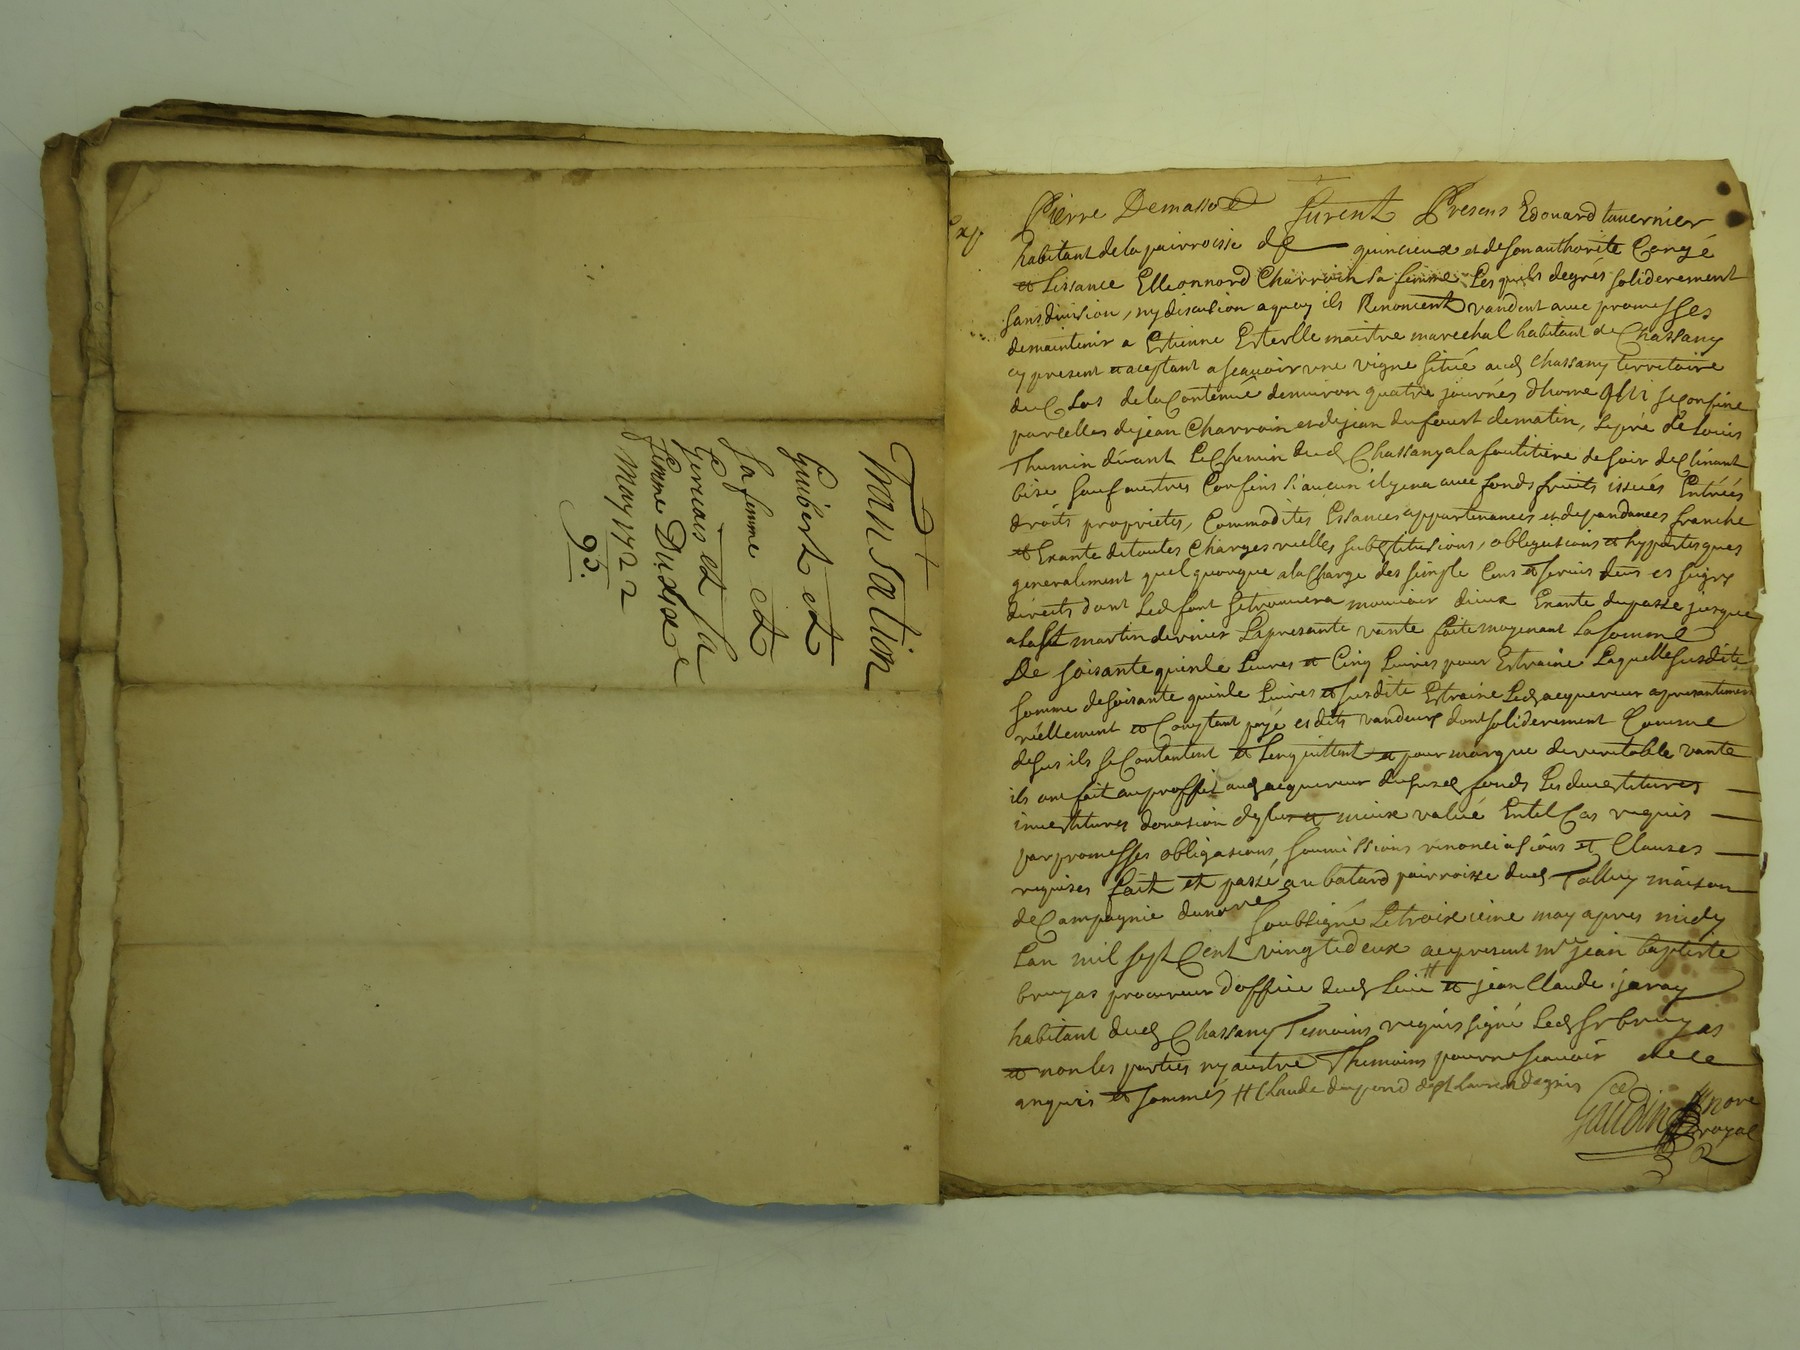 Transation
Guibert et
sa femme et
Geruais et sa
femme Du
May 1722
93.
exp
Pierre Demasso furent Presens Edouard tauernier
habitant de la pairroisse de quincieux et de son authorité Congé
et Lissance Elleonnord Charroin sa femme Lesquels degrés soliderement
sans diuision, ny discution a quoy ils Renoncent vandent auec promesses
de maintenir a Estienne Esterlle maistre marechal habitant de Chassany
cy present et aceptant a scauoir vne vigne situé aud Chassany territoire
du Clos de la Contenue denuiron quatre journés dhome qui se confine
par celles de jean Charroin et de jean du four de matin, Le pré de Louis
Thumin deuant Le Chemin dud Chassany a la de soir declinant
bize sauf autres Confins si aucun il y en a auec fonds fruits issues Entrées
droits proprietes, Commodites Essances appartenances et depandances franche
et Exante de toutes Charges reelles substitusions, obligations et hypoteques
generalment quelquonque a la Charge des simple Cens et seruis deus es seigrs
directs dont Led font se trouuera mouuoir dieux Exante du passe jusque
a la st martin dernier La presente vante faite moyenant La somme
De soisante quinse Liures et Cinq Liures pour Estraine Laquelle susdite
somme de soisante quinse Liures et susdite Etraine Led acquereur apresantement
réellement et Comptant payé esdits vandeurs dont soliderement Comme
desus ils se Contantent et Lenquittent et pour marque de veritable vante
ils ont fait au proffit aud acquereur du susd fonds Les deuestitures
inuestitures donasion de plus et mieux value Entel Cas requis
par promesses obligasions, soumissions renonciasions et Clauses
requises fait et passé au batard pairroisse dud Talluy maison
de Campagnie du nore soubsigné Le troisieme may apres midy
Lan mil sept Cent vingt deux a ce present mr jean baptiste
bruyas procureur doffice dud Lieu # et jean Claude jaray
habitant dud Chassany Temoins requis signé Led sr bruyas
et non les parties ny autre Themoins pour ne scauoir de ce
enquis et sommés # Claude dupond de st Laurend dagnis
Gaudin nore
royal